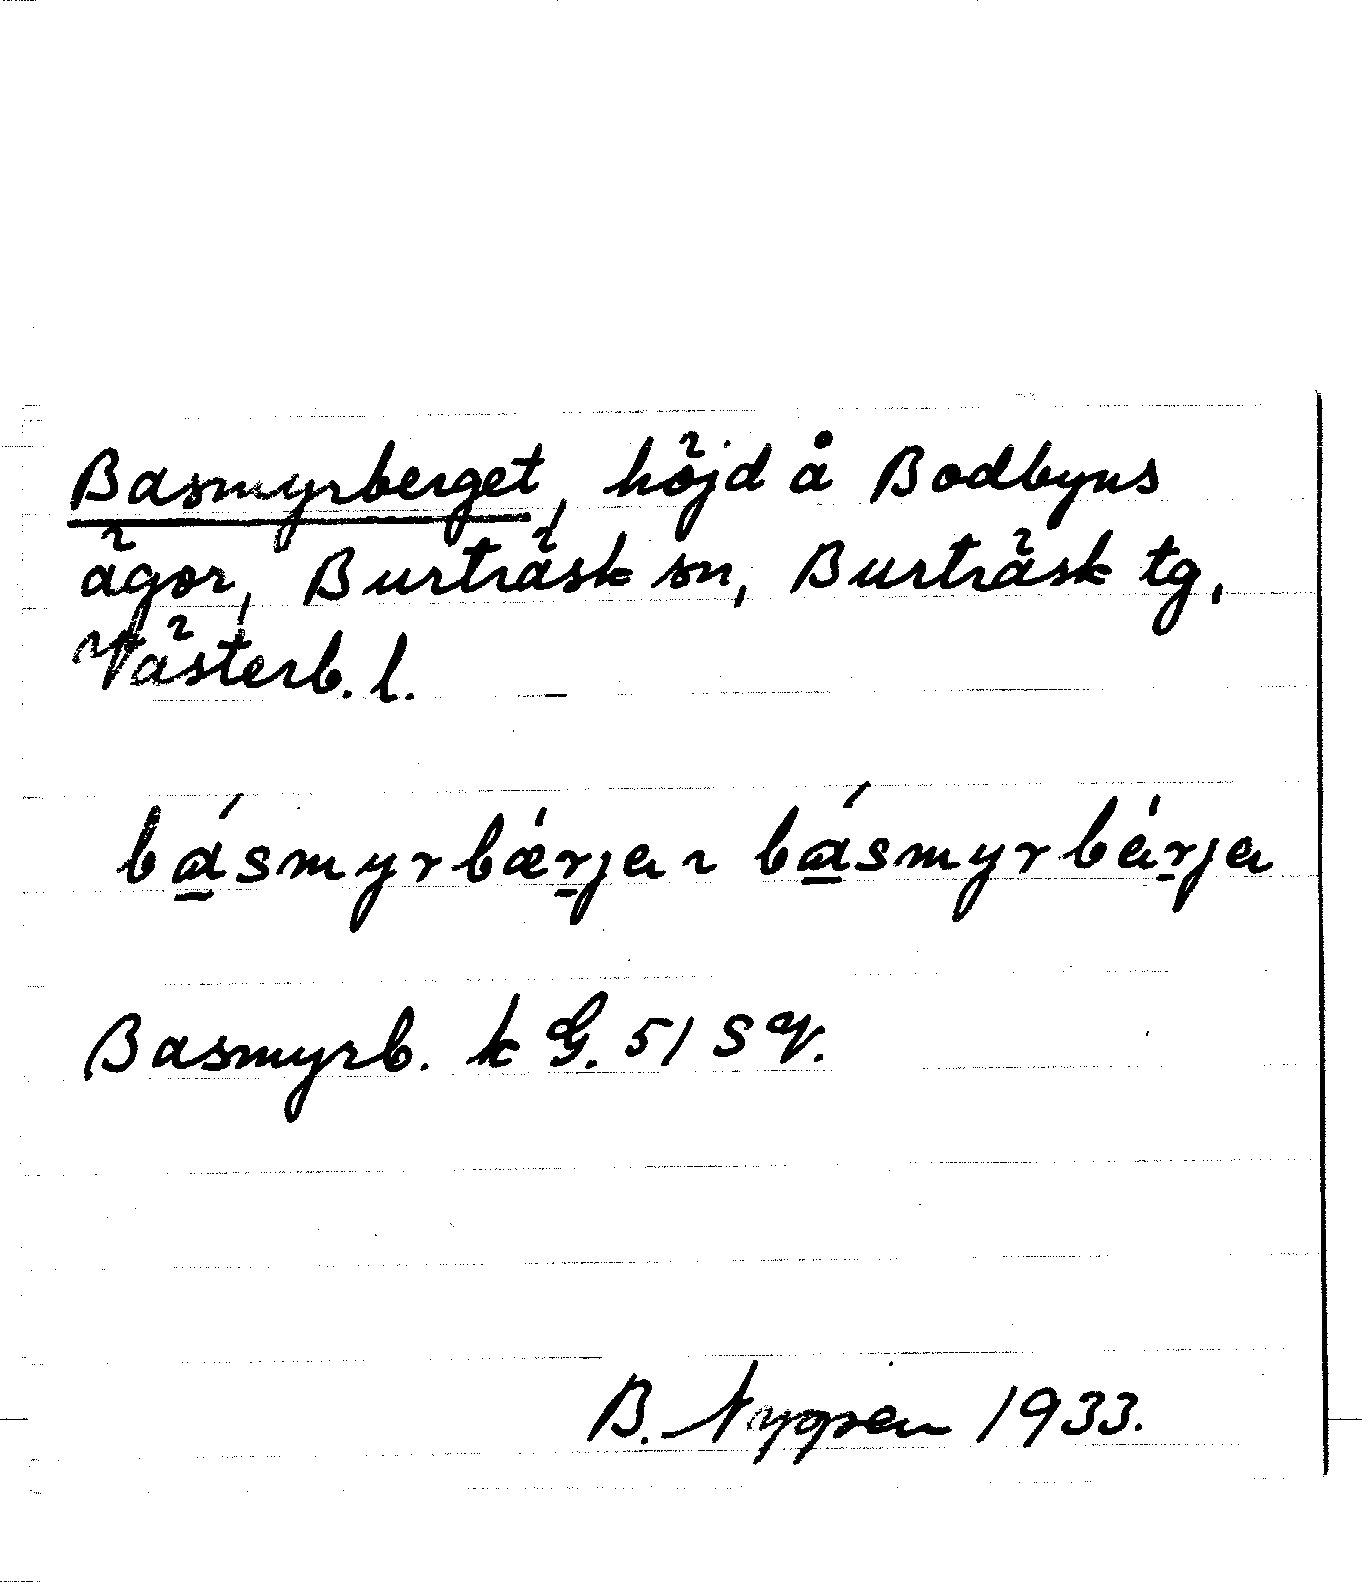 Basmyrberget, höjd å Bodbyns
ägor, Burträsk sn, Burträsk tg,
Västerb. l.
básmyrbǽrja ~ básmyrbárja
Basmyrb. k G. 51 SV.
B. Nygren 1933.